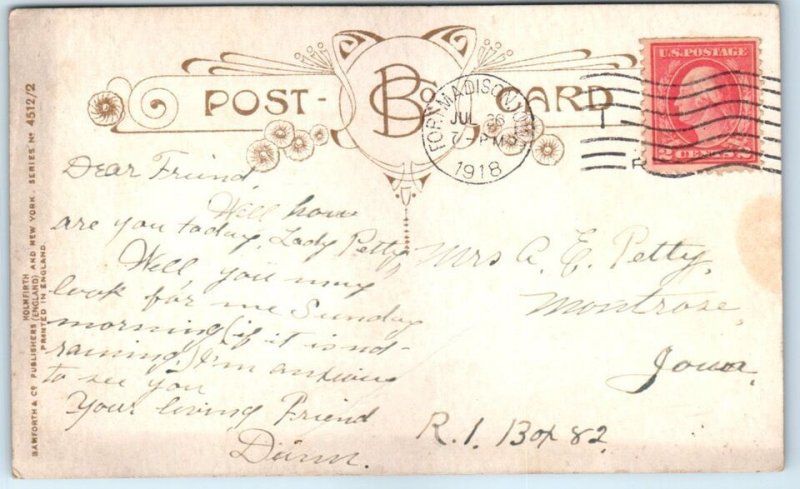 POST CARD
BCo
FORT MADISON, IOWA
JUL 26
7-PM
1918
U.S. POSTAGE
2 CENTS 2
Dear Friend,
Well how
are you today, Lady Petty,
Well you may
look for me Sunday
morning (if it is not
raining) I'm anxious
to see you
Your loving Friend
Mrs A. E. Petty,
Montrose,
Iowa.
R. 1. Box 82
BAMFORTH & Co PUBLISHERS (ENGLAND) AND NEW YORK. SERIES No 4512/2
HOLMFIRTH
PRINTED IN ENGLAND.